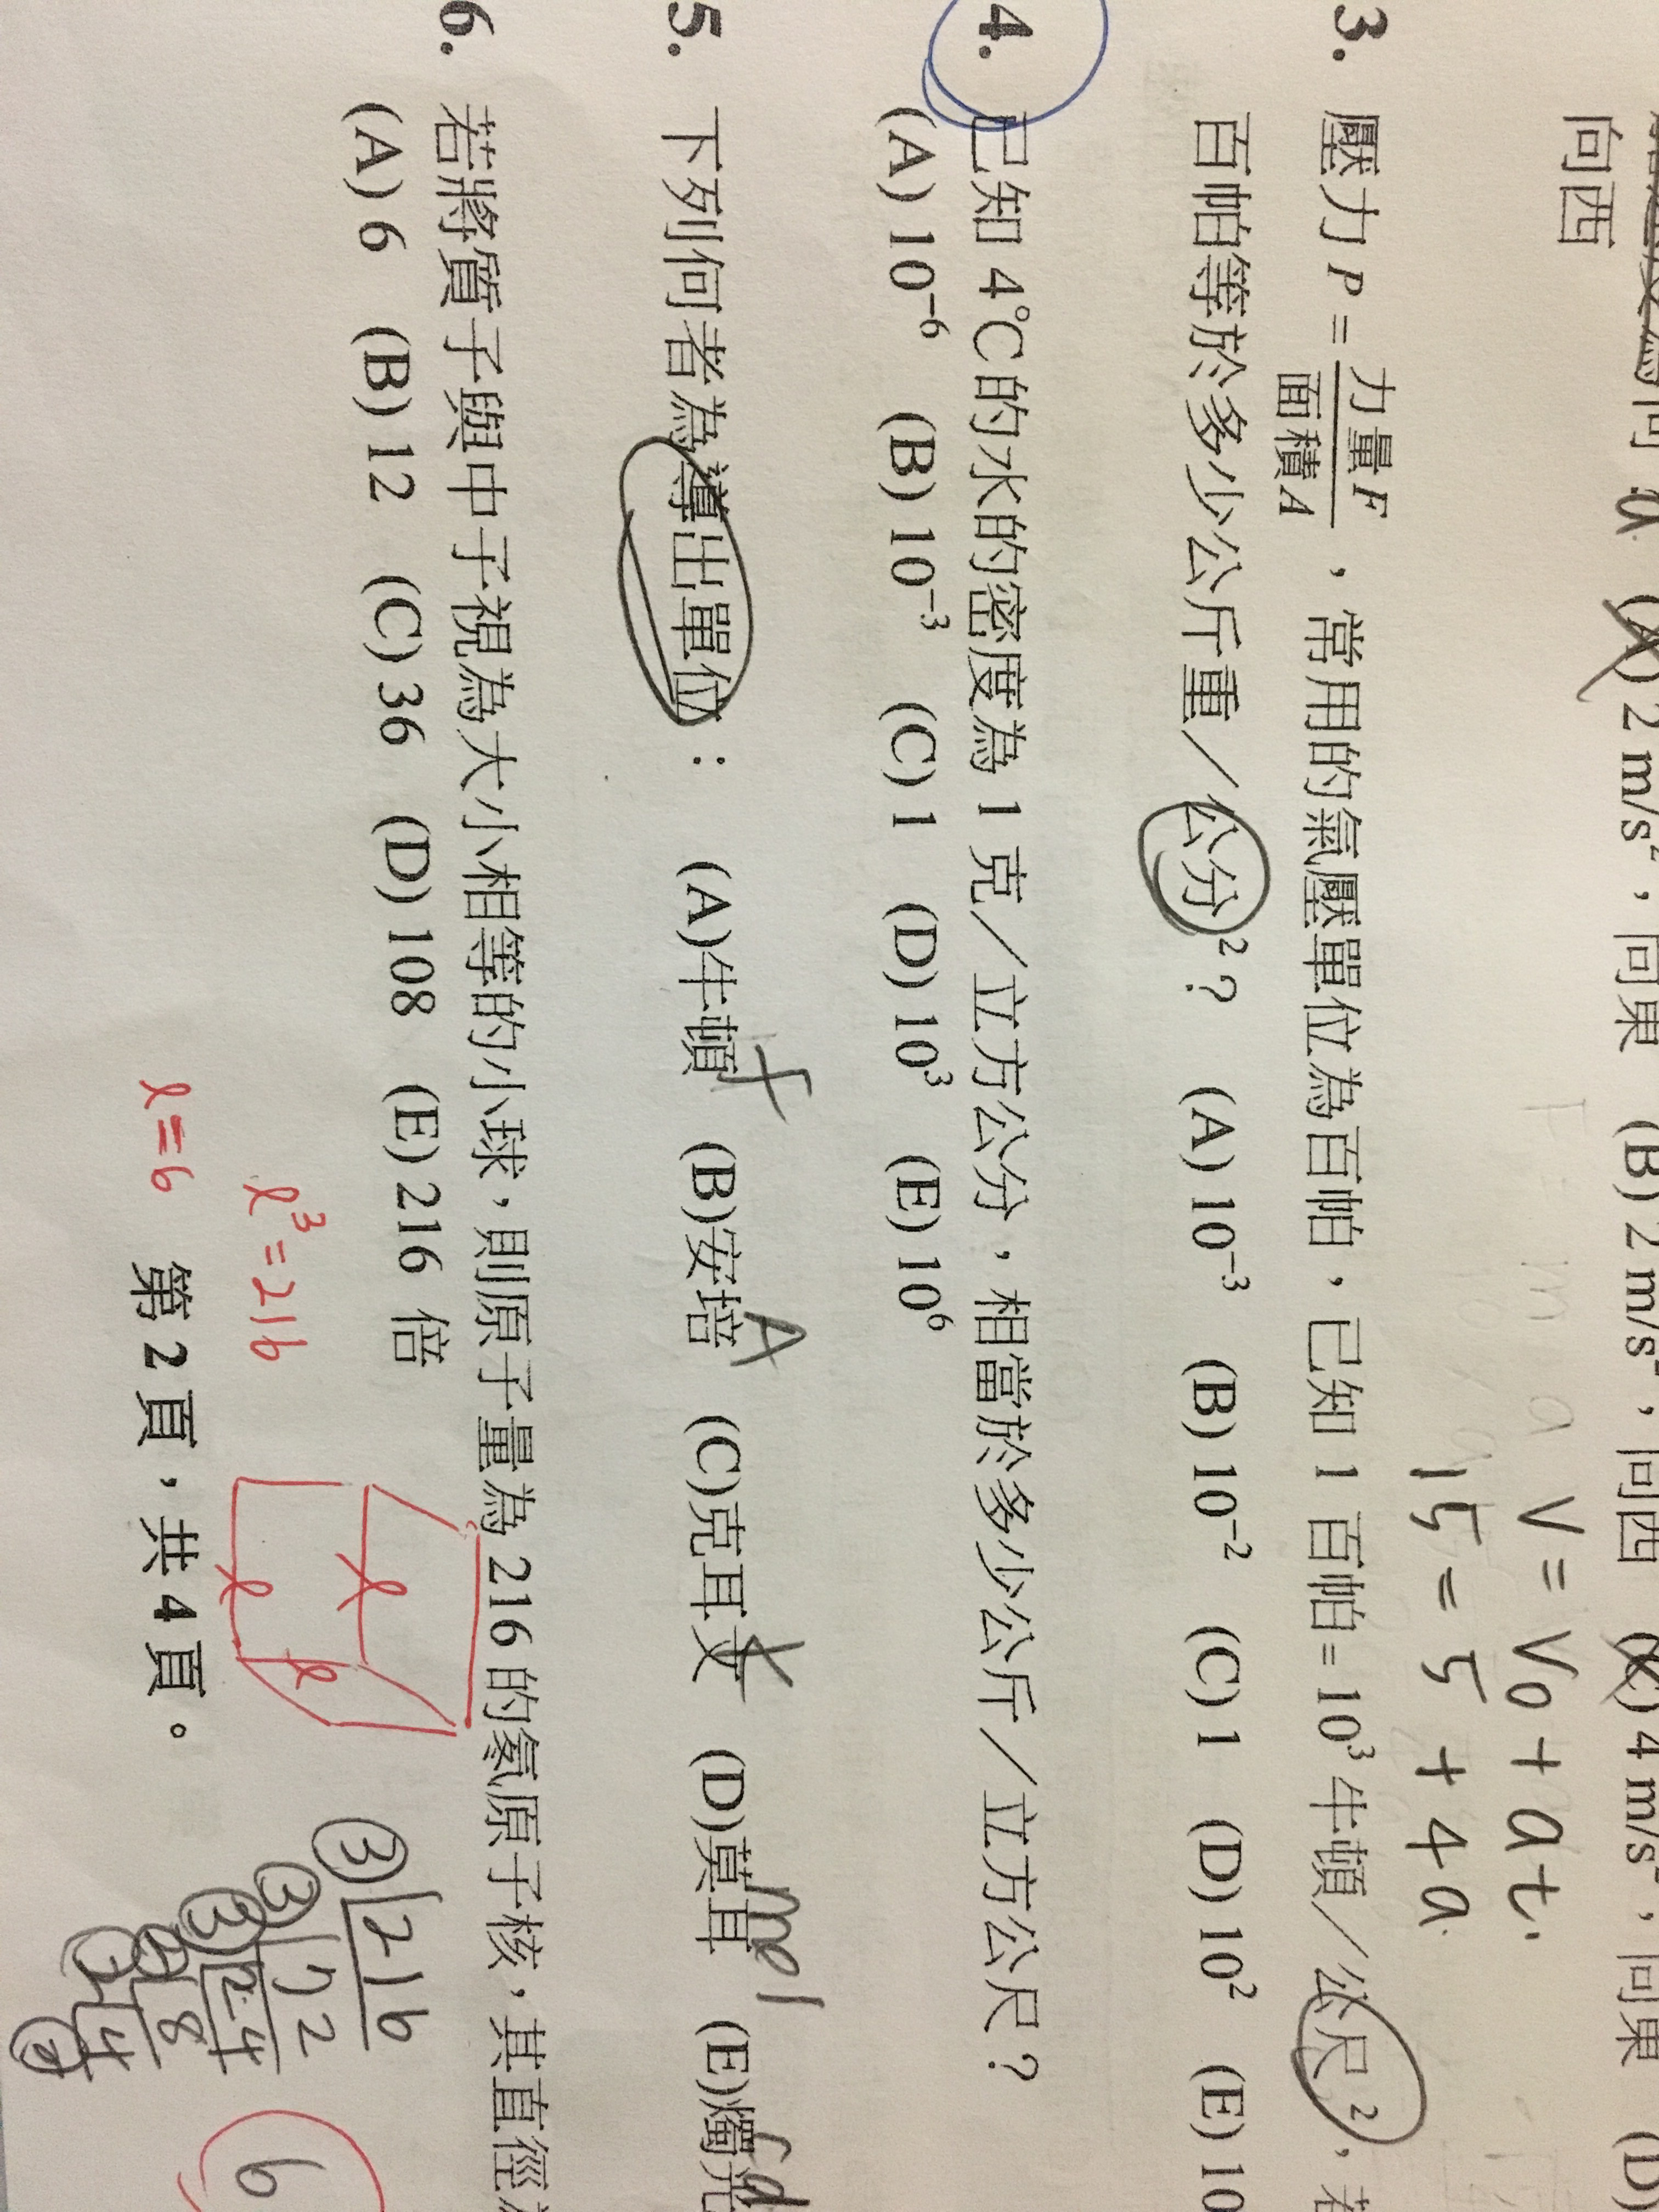 向西
(A) 2 m/s²，向東 (B) 2 m/s²，向西 (C) 4 m/s²，向東 (D)
V = V₀ + at.
15 = 5 + 4a
3. 壓力 P = 力量F／面積A ，常用的氣壓單位為百帕，已知 1 百帕 = 10³ 牛頓／公尺²，若
百帕等於多少公斤重／公分²？ (A) 10⁻³ (B) 10⁻² (C) 1 (D) 10² (E) 10
4. 已知 4℃的水的密度為 1 克／立方公分，相當於多少公斤／立方公尺？
(A) 10⁻⁶ (B) 10⁻³ (C) 1 (D) 10³ (E) 10⁶
A mol cd
5. 下列何者為導出單位： (A)牛頓 (B)安培 (C)克耳文 (D)莫耳 (E)燭光
6. 若將質子與中子視為大小相等的小球，則原子量為 216 的氡原子核，其直徑
(A) 6 (B) 12 (C) 36 (D) 108 (E) 216 倍
ℓ³=216
ℓ=6
ℓ
ℓ
ℓ
3 216
3 72
3 24
2 8
2 4
2
6
第 2 頁，共 4 頁。